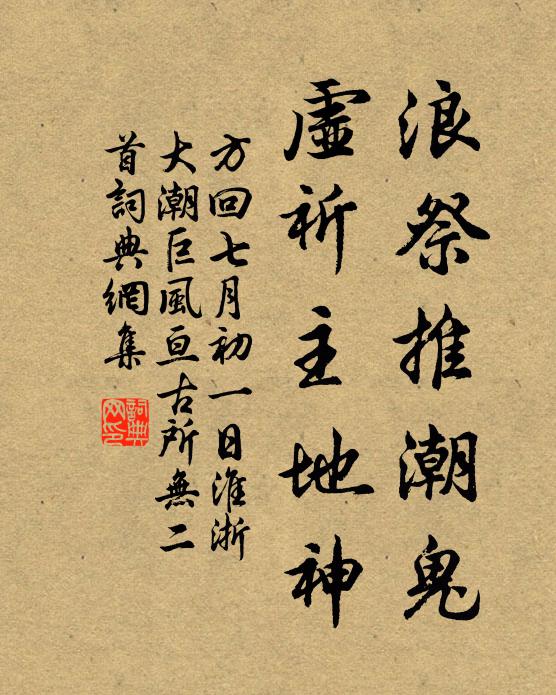 浪祭推潮鬼
虛祈主地神
方回七月初一日淮浙
大潮巨風亘古所無二
首詞典網集
詞典
網印